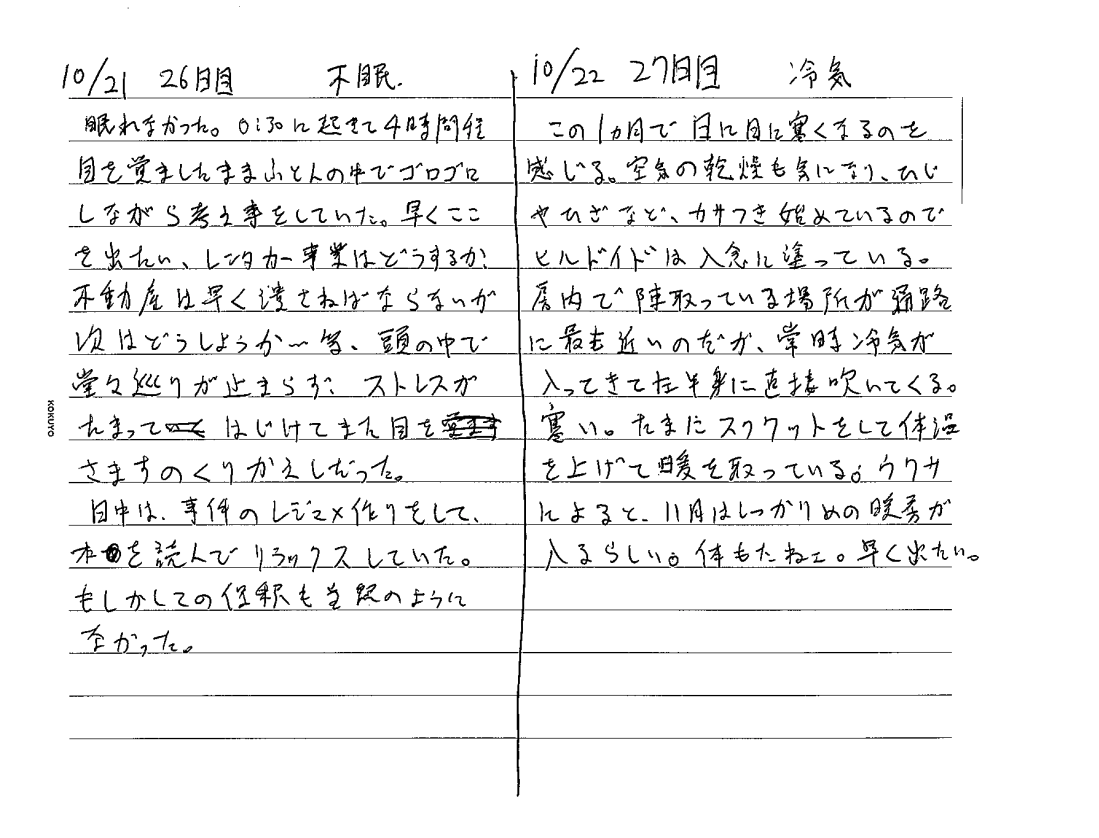 10/21 26日目 不眠.
眠れなかった。0:30に起きて4時間程
目を覚ましたままふとんの中でゴロゴロ
しながら考え事をしていた。早くここ
を出たい、レンタカー事業はどうするか、
不動産は早く潰さねばならないが
次はどうしようか〜等、頭の中で
堂々巡りが止まらず、ストレスが
たまって はじけてまた目を
さますのくりかえしだった。
日中は、事件のレジュメ作りをして、
本を読んでリラックスしていた。
もしかしての保釈も当然のように
なかった。
10/22 27日目 冷気
この1ヵ月で日に日に寒くなるのを
感じる。空気の乾燥も気になり、ひじ
やひざなど、カサつき始めているので
ヒルドイドは入念に塗っている。
居内で陣取っている場所が通路
に最も近いのだが、常時冷気が
入ってきて左半身に直接吹いてくる。
寒い。たまにスクワットをして体温
を上げて暖を取っている。ウワサ
によると、11月はしっかりめの暖房が
入るらしい。体もたねェ。早く出たい。
KOKUYO